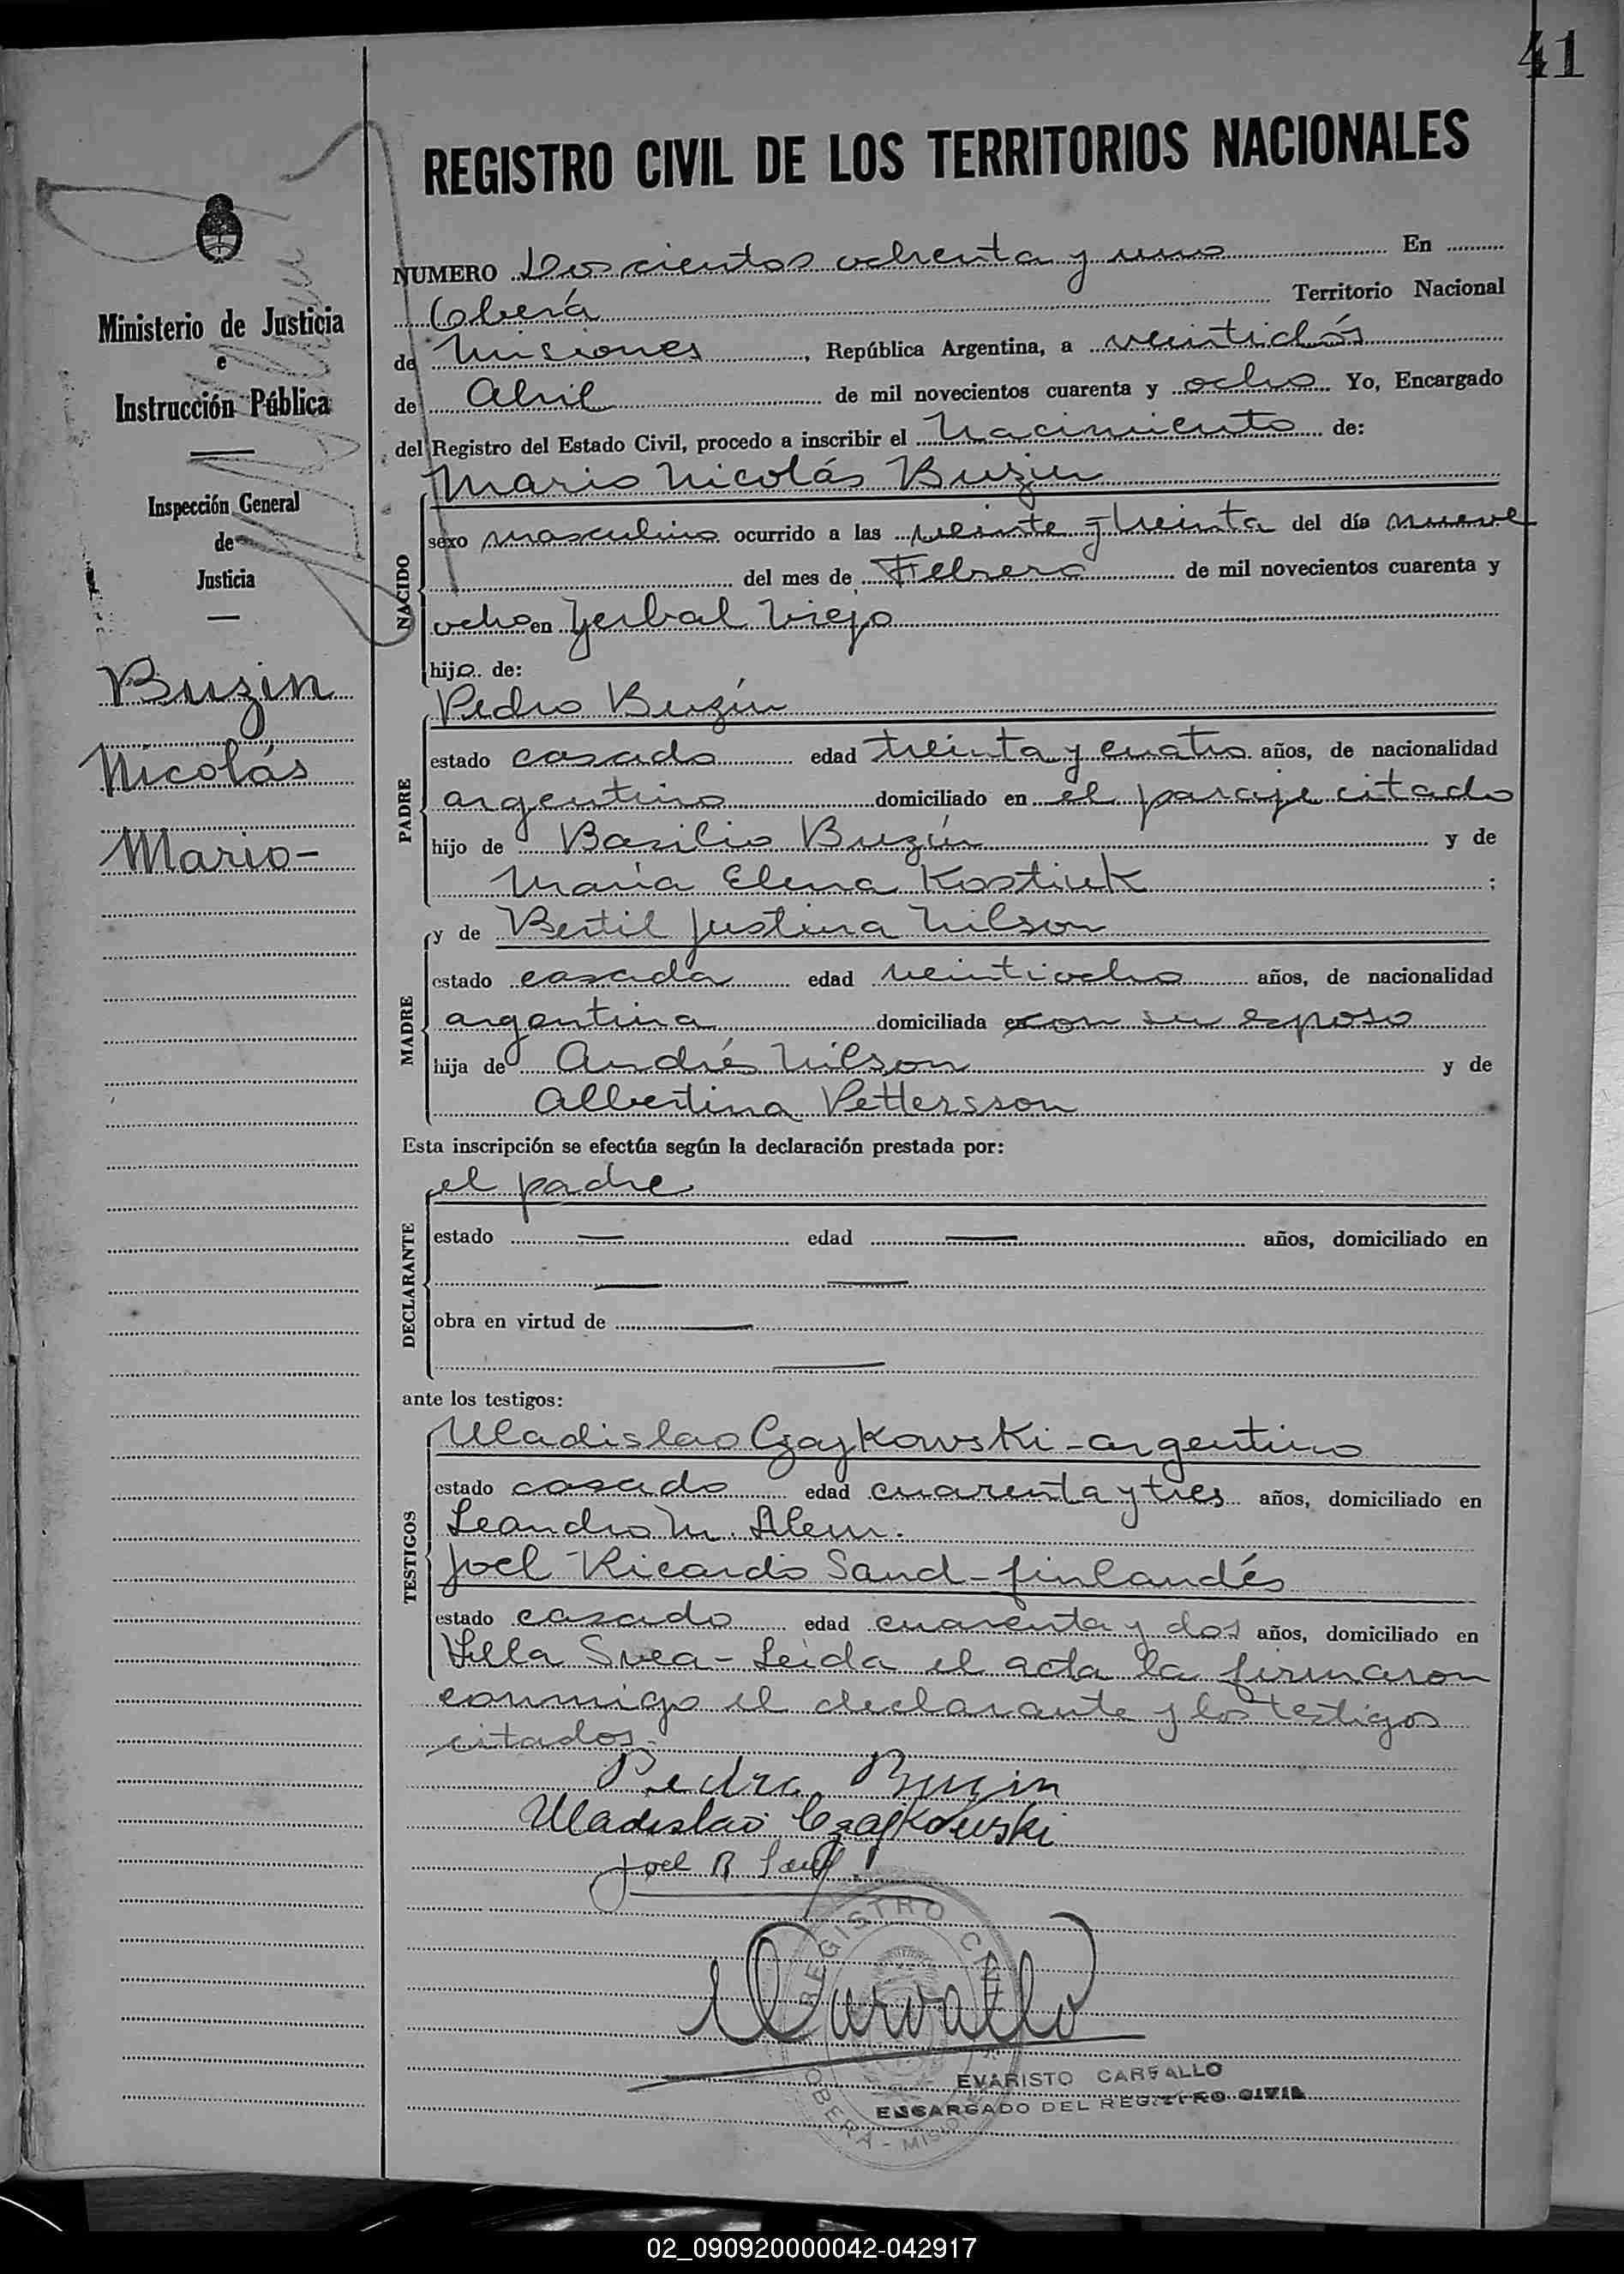 41
REGISTRO CIVIL DE LOS TERRITORIOS NACIONALES
NUMERO Doscientos ochenta y uno En
Oberá Territorio Nacional
de Misiones, República Argentina, a veintidós
de Abril de mil novecientos cuarenta y ocho Yo, Encargado
del Registro del Estado Civil, procedo a inscribir el Nacimiento de:
Mario Nicolás Buzin
NACIDO
sexo masculino ocurrido a las veinte y treinta del día nueve
del mes de Febrero de mil novecientos cuarenta y
ocho en Yerbal Viejo
hijo de:
Pedro Buzin
PADRE
estado casado edad treinta y cuatro años, de nacionalidad
argentino domiciliado en el paraje citado
hijo de Basilio Buzin y de
María Elena Kostiuk;
y de Bertil Justina Nilson
MADRE
estado casada edad veintiocho años, de nacionalidad
argentina domiciliada en con su esposo
hija de Andrés Nilson y de
Albertina Pettersson
Esta inscripción se efectúa según la declaración prestada por:
el padre
DECLARANTE
estado — edad — años, domiciliado en
— —
obra en virtud de —
—
ante los testigos:
Uladislao Czajkowski - argentino
TESTIGOS
estado casado edad cuarenta y tres años, domiciliado en
Leandro N. Alem.
Joel Ricardo Sand - finlandés
estado casado edad cuarenta y dos años, domiciliado en
Villa Svea - Leida el acta la firmaron
conmigo el declarante y los testigos
citados.
Pedro Buzin
Uladislao Czajkowski
Joel R Sand
REGISTRO CIVIL
OBERA - MISIONES
EVARISTO CARVALLO
ENCARGADO DEL REGISTRO CIVIL
Ministerio de Justicia
e
Instrucción Pública
Inspección General
de
Justicia
Buzin
Nicolás
Mario-
02_090920000042-042917